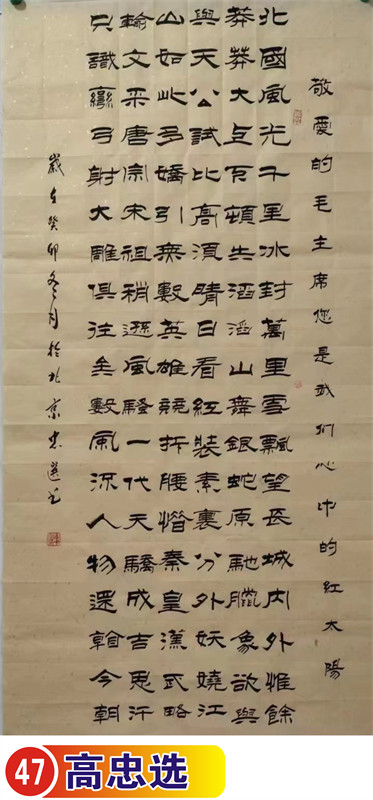 敬愛的毛主席您是我们心中的红太陽
北國風光千里冰封萬里雪飄望長城内外惟餘
莽莽大上下頓失滔滔山舞銀蛇原馳臘象欲與
與天公試比高須晴日看紅裝素裹分外妖嬈江
山如此多嬌引無數英雄競折腰惜秦皇漢武略
輸文采唐宗宋祖稍遜風騷一代天驕成吉思汗
只識彎弓射大雕俱往矣數風流人物還看今朝
歲在癸卯冬月於北京忠選书
47 高忠选